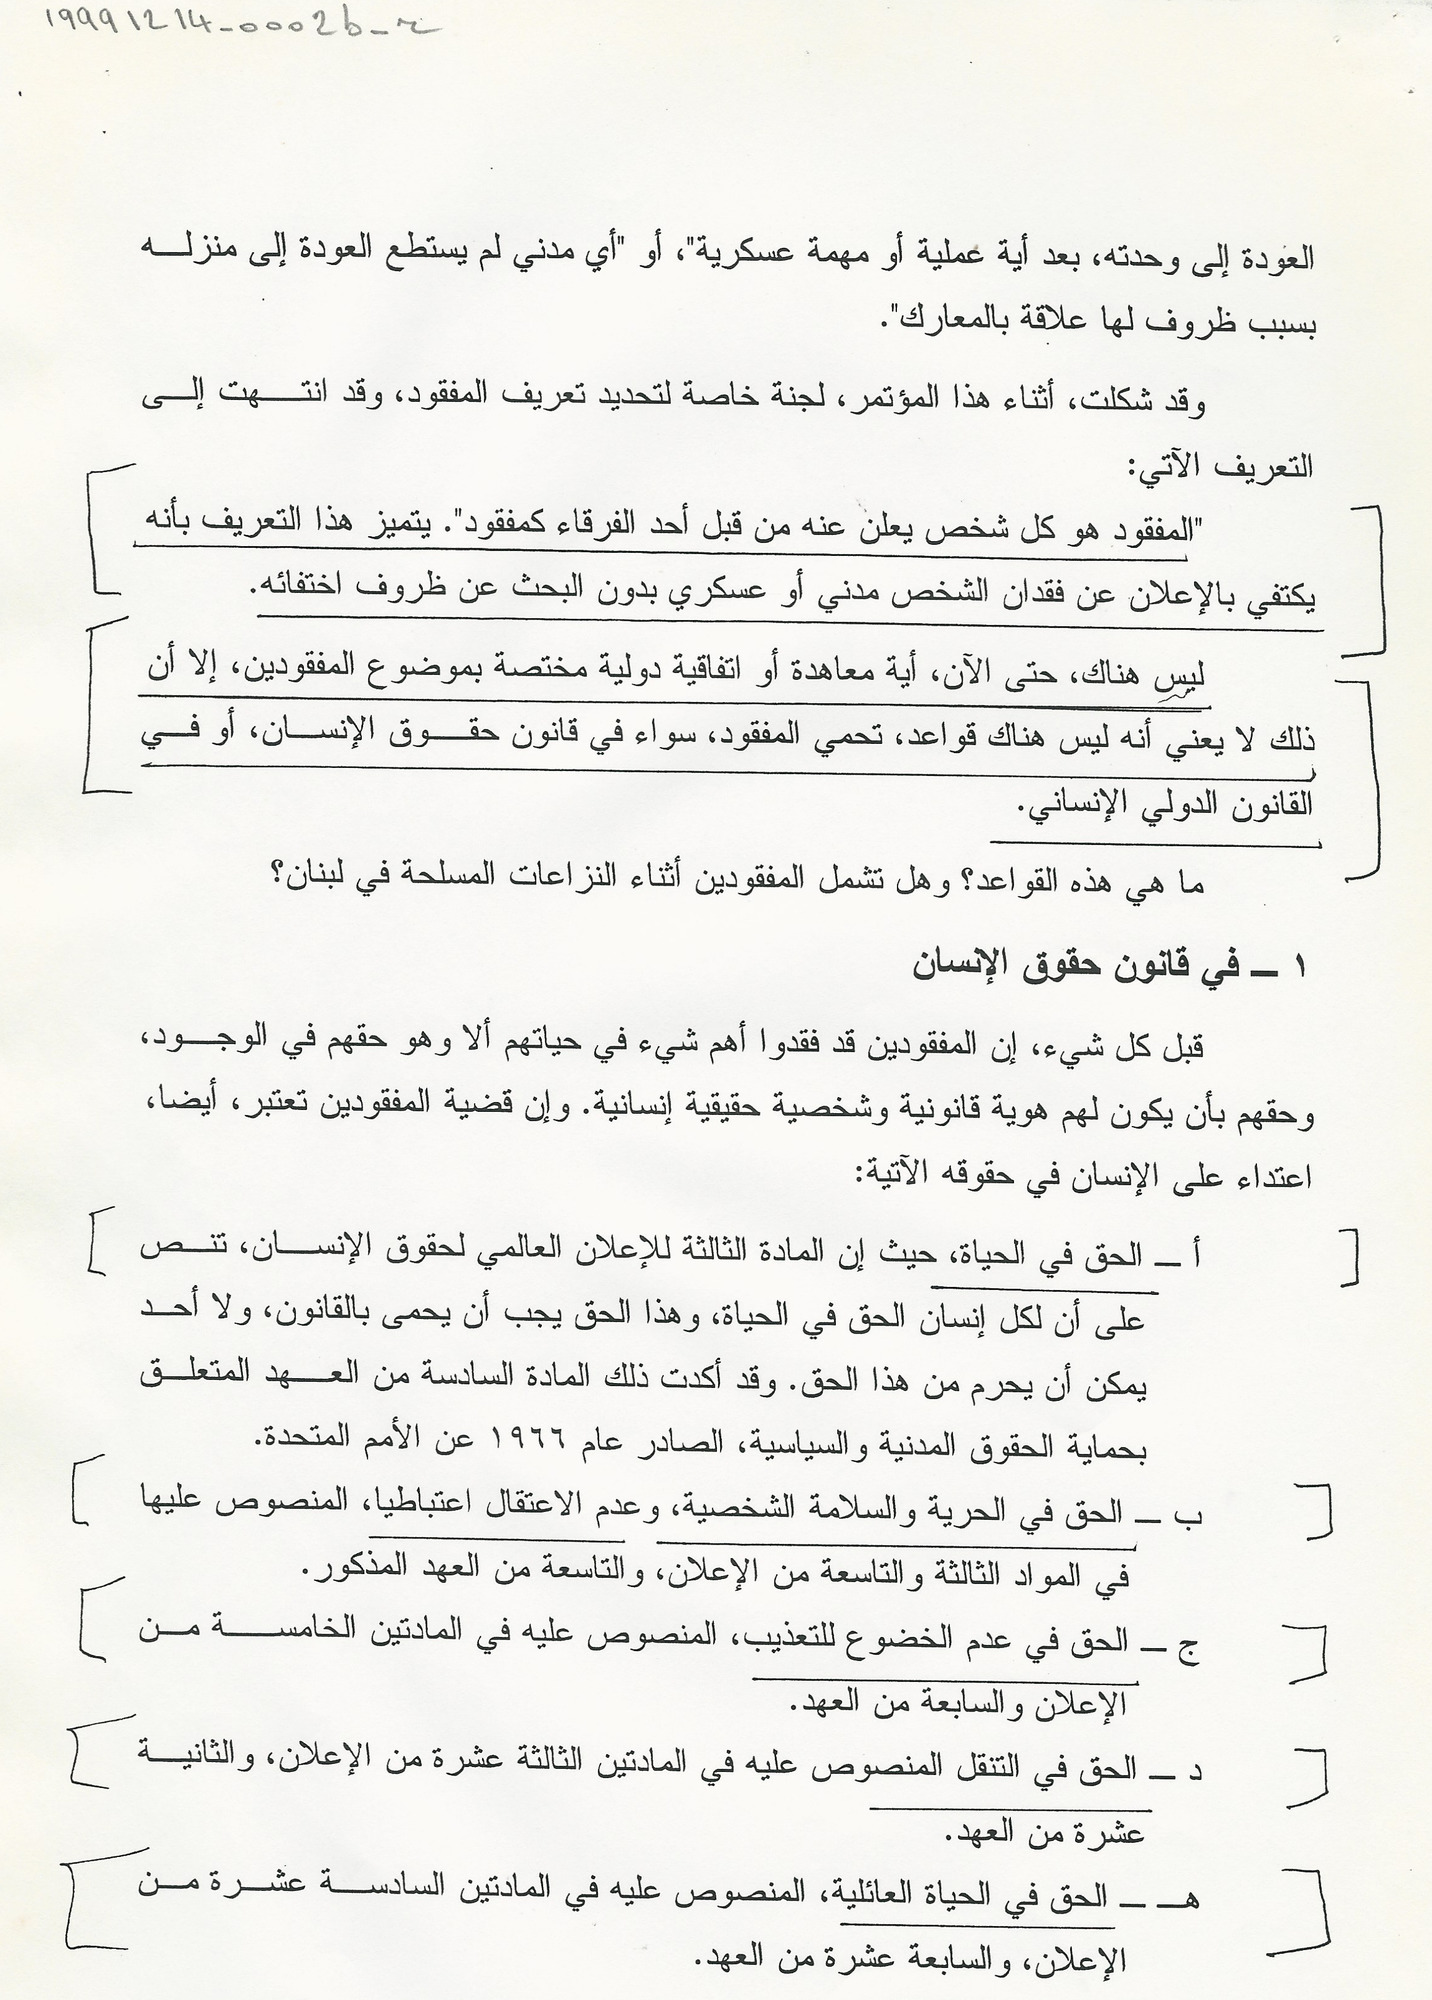 19991214-0002b-r
العودة إلى وحدته، بعد أية عملية أو مهمة عسكرية"، أو "أي مدني لم يستطع العودة إلى منزله
بسبب ظروف لها علاقة بالمعارك".
وقد شكلت، أثناء هذا المؤتمر، لجنة خاصة لتحديد تعريف المفقود، وقد انتهت إلى
التعريف الآتي:
"المفقود هو كل شخص يعلن عنه من قبل أحد الفرقاء كمفقود". يتميز هذا التعريف بأنه
يكتفي بالإعلان عن فقدان الشخص مدني أو عسكري بدون البحث عن ظروف اختفائه.
ليس هناك، حتى الآن، أية معاهدة أو اتفاقية دولية مختصة بموضوع المفقودين، إلا أن
ذلك لا يعني أنه ليس هناك قواعد، تحمي المفقود، سواء في قانون حقوق الإنسان، أو في
القانون الدولي الإنساني.
ما هي هذه القواعد؟ وهل تشمل المفقودين أثناء النزاعات المسلحة في لبنان؟
١ – في قانون حقوق الإنسان
قبل كل شيء، إن المفقودين قد فقدوا أهم شيء في حياتهم ألا وهو حقهم في الوجود،
وحقهم بأن يكون لهم هوية قانونية وشخصية حقيقية إنسانية. وإن قضية المفقودين تعتبر، أيضا،
اعتداء على الإنسان في حقوقه الآتية:
أ – الحق في الحياة، حيث إن المادة الثالثة للإعلان العالمي لحقوق الإنسان، تنص
على أن لكل إنسان الحق في الحياة، وهذا الحق يجب أن يحمى بالقانون، ولا أحد
يمكن أن يحرم من هذا الحق. وقد أكدت ذلك المادة السادسة من العهد المتعلق
بحماية الحقوق المدنية والسياسية، الصادر عام ١٩٦٦ عن الأمم المتحدة.
ب – الحق في الحرية والسلامة الشخصية، وعدم الاعتقال اعتباطيا، المنصوص عليها
في المواد الثالثة والتاسعة من الإعلان، والتاسعة من العهد المذكور.
ج – الحق في عدم الخضوع للتعذيب، المنصوص عليه في المادتين الخامسة من
الإعلان والسابعة من العهد.
د – الحق في التنقل المنصوص عليه في المادتين الثالثة عشرة من الإعلان، والثانية
عشرة من العهد.
هـ – الحق في الحياة العائلية، المنصوص عليه في المادتين السادسة عشرة من
الإعلان، والسابعة عشرة من العهد.